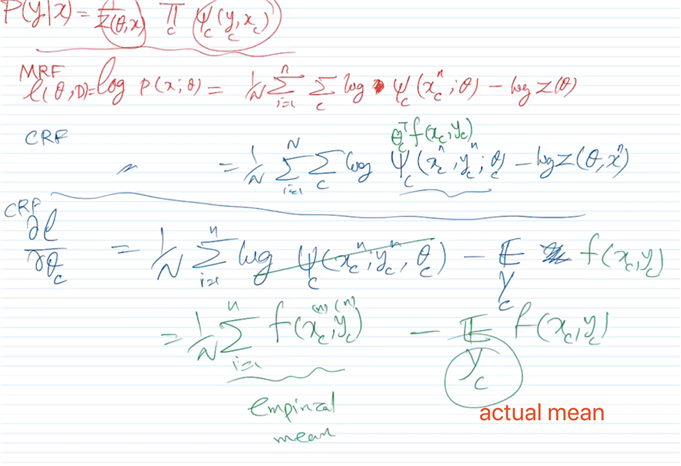 P(y|x) = 1/Z(θ,x) ∏_c ψ_c(y_c, x_c)
MRF
ℓ(θ,D) = log p(x;θ) = 1/N Σ_{i=1}^n Σ_c log ψ_c(x_c^n;θ) - log Z(θ)
θ_c^T f(x_c,y_c)
CRF " = 1/N Σ_{i=1}^N Σ_c log ψ_c(x_c^n, y_c^n; θ_c) - log Z(θ, x^n)
CRF
∂ℓ/∂θ_c = 1/N Σ_{i=1}^n log ψ_c(x_c^n, y_c^n, θ_c) - E_{y_c} f(x_c, y_c)
= 1/N Σ_{i=1}^n f(x_c^{(n)}, y_c^{(n)}) - E_{y_c} f(x_c, y_c)
empirical
mean
actual mean